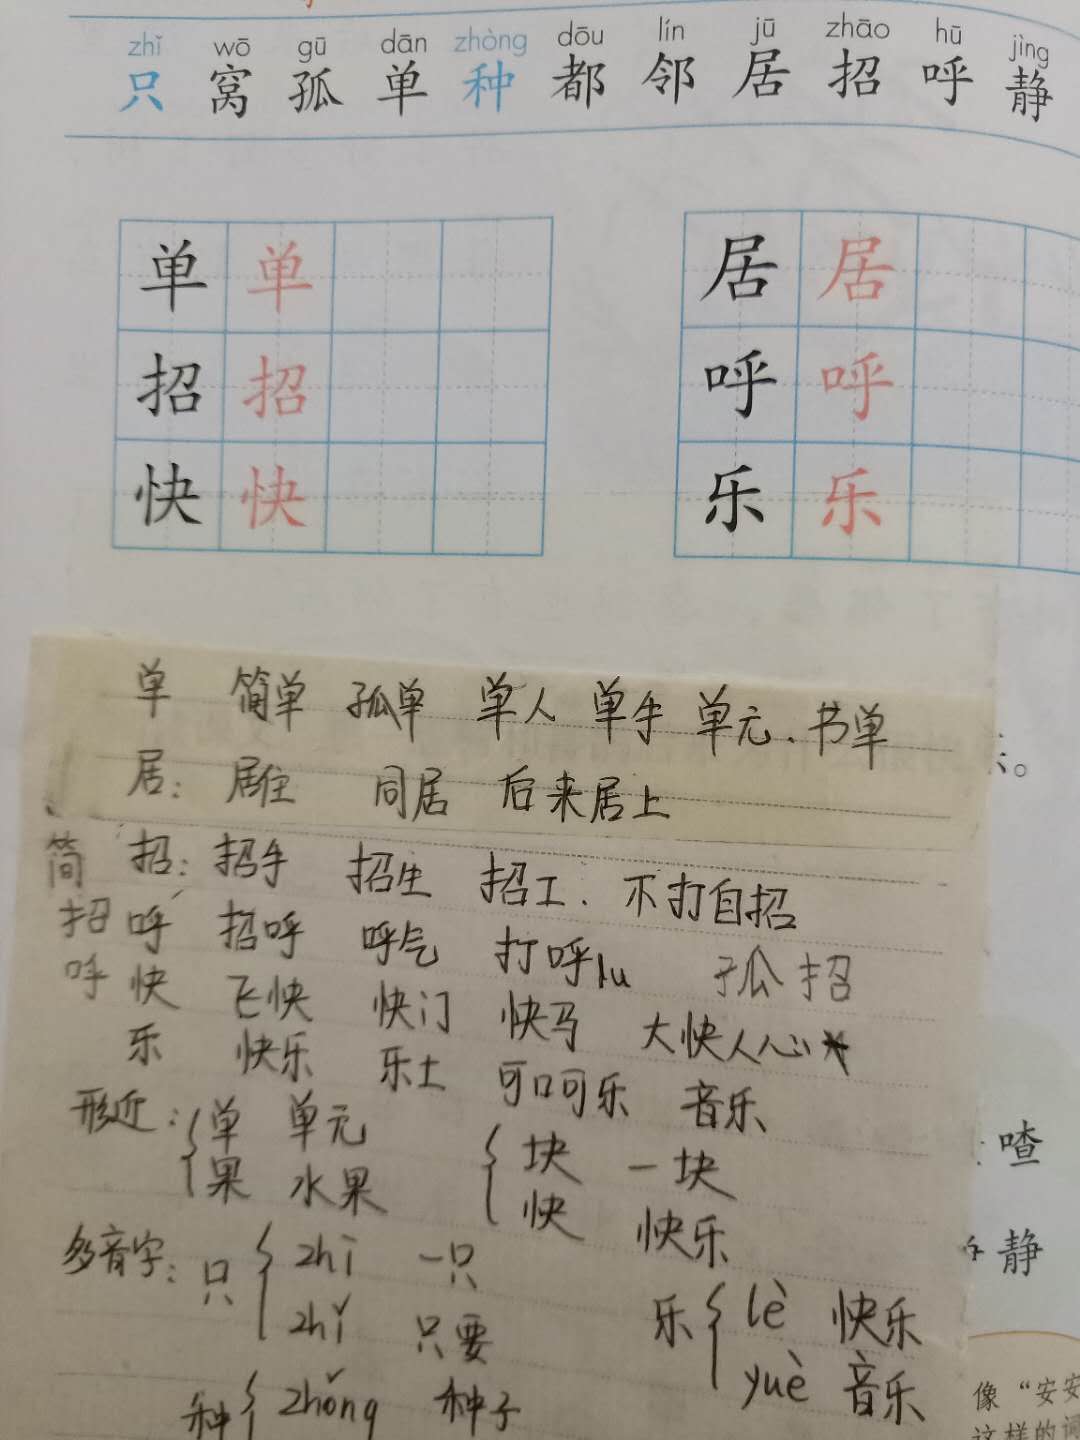 zhǐ wō gū dān zhòng dōu lín jū zhāo hū jìng
只 窝 孤 单 种 都 邻 居 招 呼 静
单 单 居 居
招 招 呼 呼
快 快 乐 乐
单 简单 孤单 单人 单手 单元、书单
居: 居住 同居 后来居上
简 招: 招手 招生 招工. 不打自招
招 呼 招呼 呼气 打呼lu 孤 招
呼 快 飞快 快门 快马 大快人心
乐 快乐 乐土 可口可乐 音乐
形近: 单 单元 块 一块
果 水果 快 快乐
多音字: 只 zhī 一只
zhǐ 只要
乐 lè 快乐
yuè 音乐
种 zhǒng 种子
。
喳
静
像“安安
这样的词